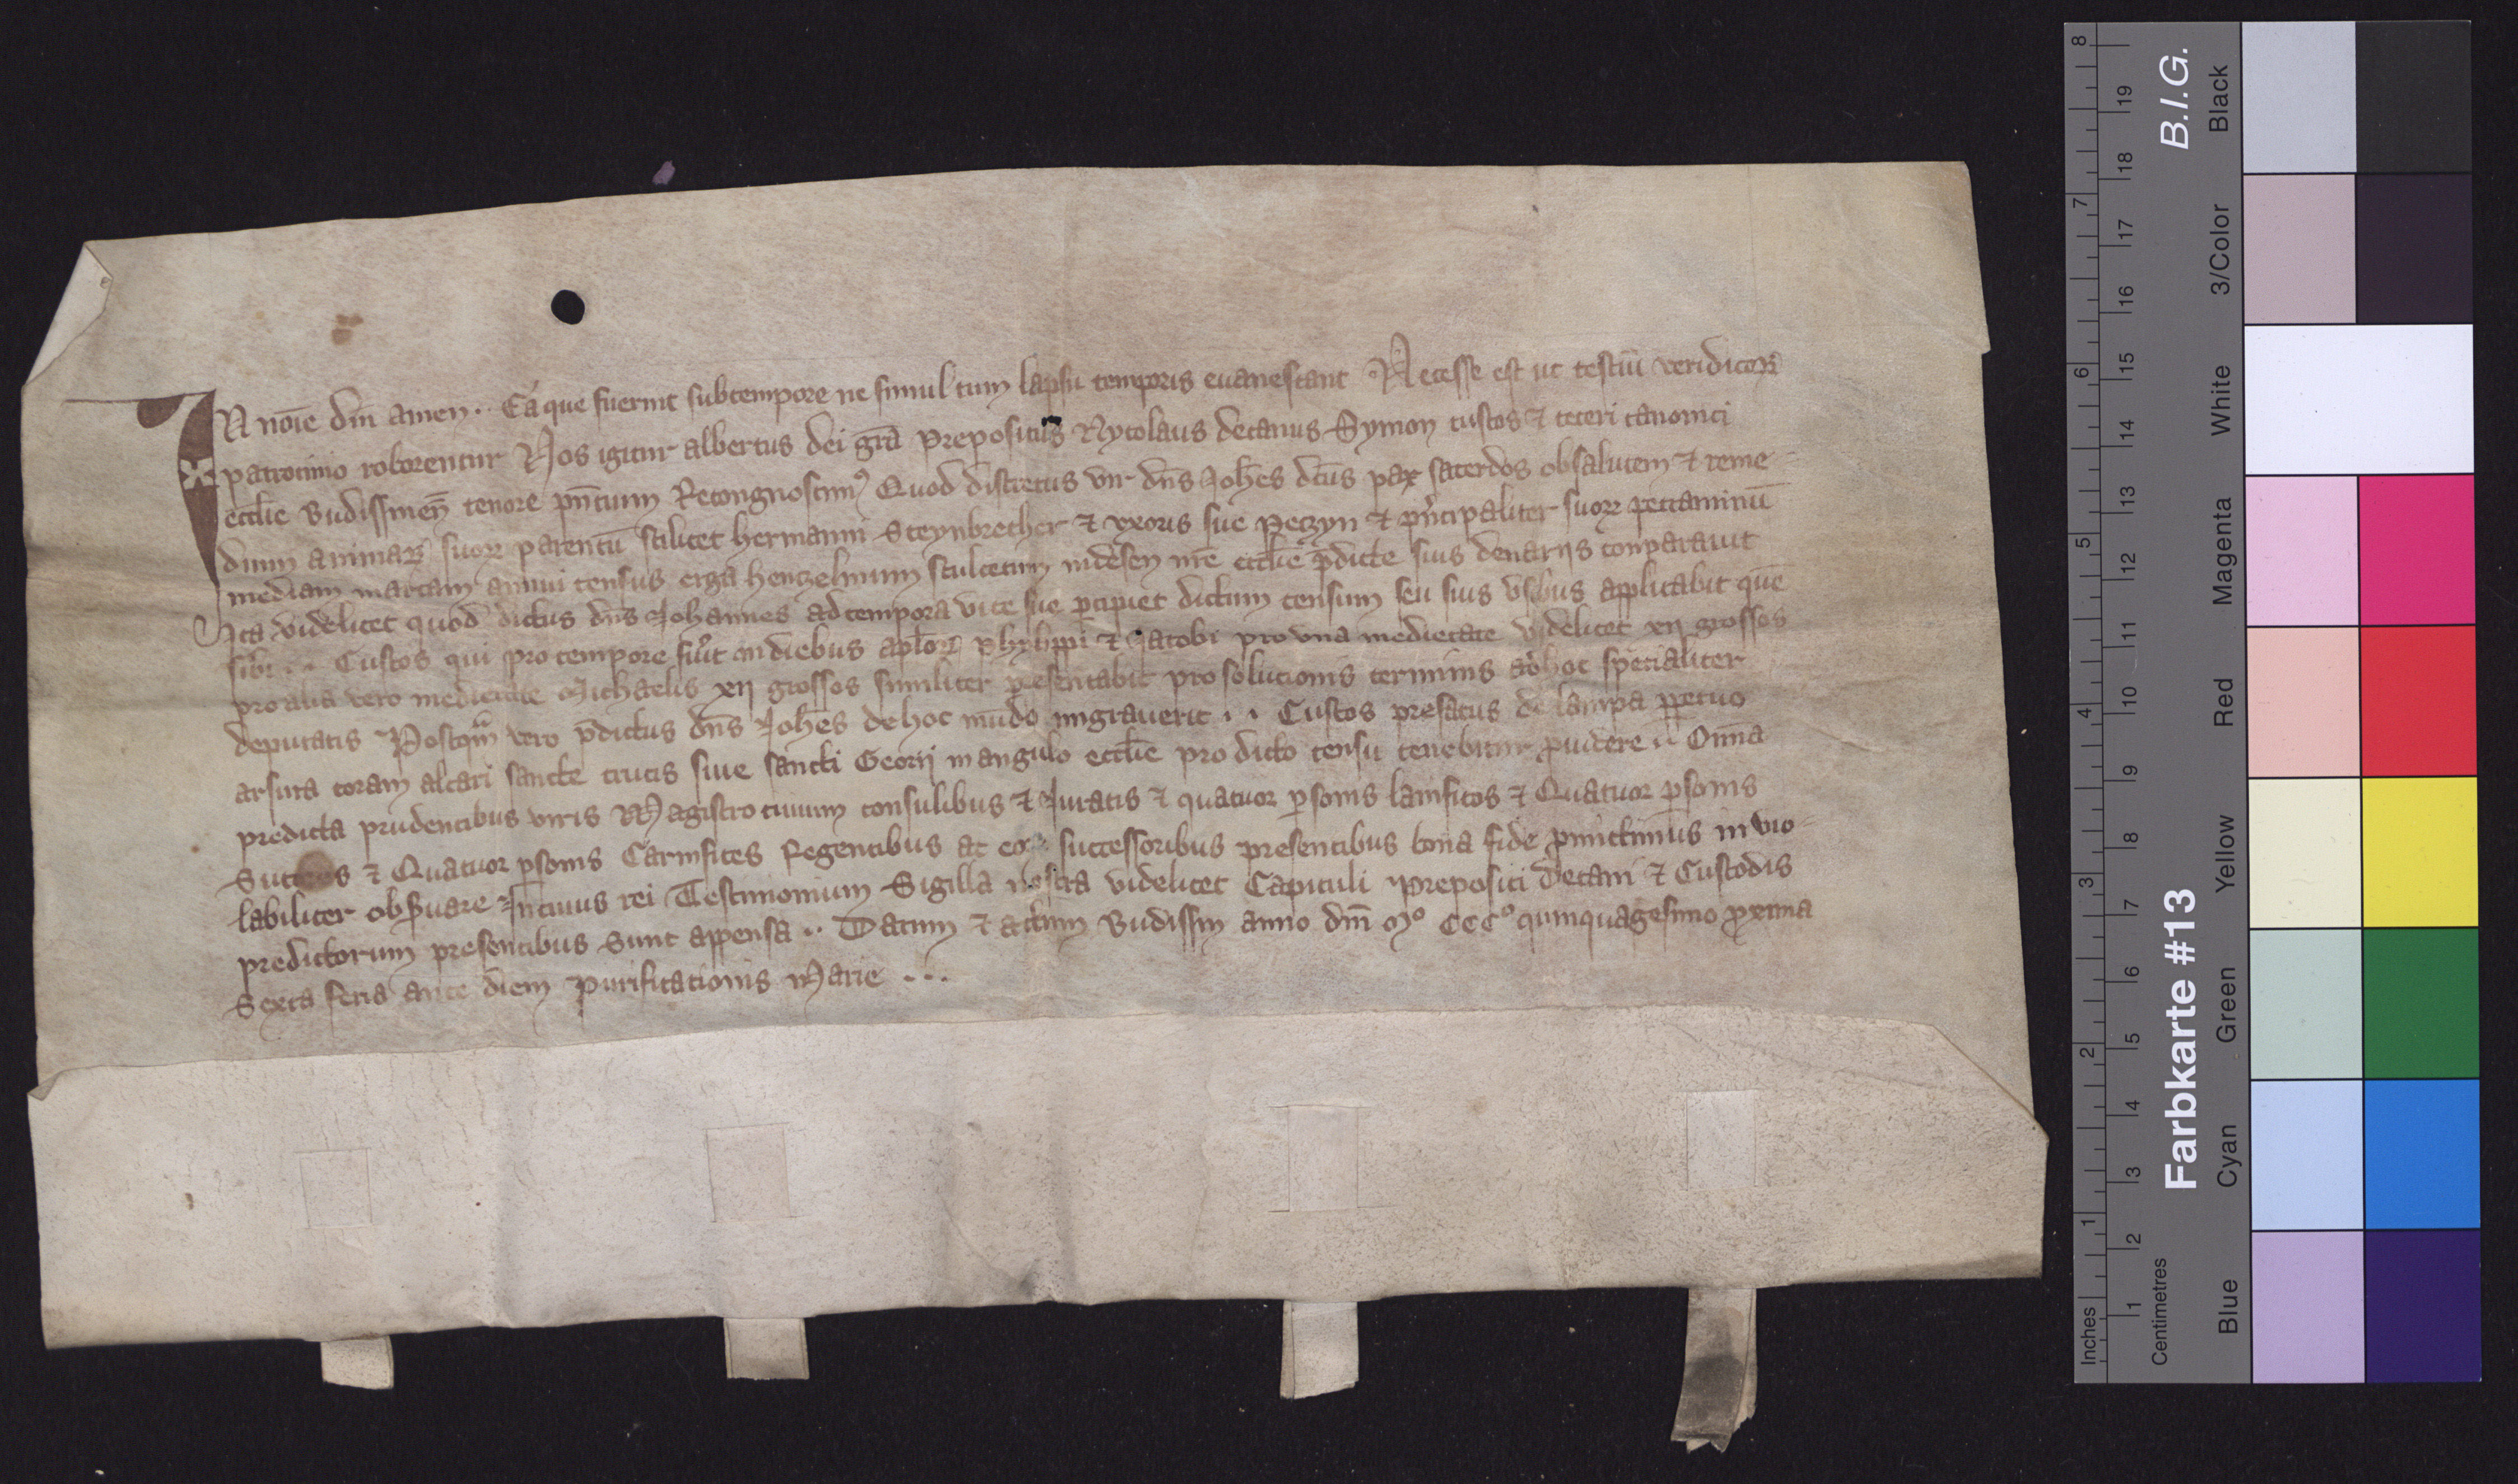 IN noīe dn̄i amen ·· Ea que fuerint sub tempore ne simul cum lapsu temporis euanescant Necesse est ut testiū veridicoꝝ
patrocinio roborentur Nos igitur albertus dei gr̄a prepositus Nycolaus decanus Symon custos ⁊ ceteri canonici
eccl̄ie Budissinen̄ tenore pn̄tium Recongnoscimꝰ Quod discretus vir dn̄s Joh̄es dc̄us pax sacerdos ob salutem ⁊ reme-
dium animaꝝ suoꝝ parentū scilicet hermanni Steynbrecher ⁊ vxoris sue Peczyn ⁊ pn̄cipaliter suoꝝ peccaminū
mediam marcam annui census erga henczelinum scultetum in desen nr̄e eccl̄ie p̄dicte suis denarijs conparauit
Ita videlicet quod dictus dn̄s Johannes ad tempora vite sue ꝑcipiet dictum censum seu suis vsibus applicabit quē
sibi ·· Custos qui pro tempore fu͛it in diebus apl̄oꝝ Phylippi ⁊ Jacobi pro vna medietate videlicet xij grossos
pro alia vero medietate Michaelis xij grossos similiter presentabit pro solucionis terminis ad hoc specialiter
deputatis Postqͣm vero p̄dictus dn̄s Joh̄es de hoc mūdo migrauerit ·· Custos prefatus de lampa ꝑpetuo
arsura coram altari sancte crucis siue sancti Georij in angulo eccl̄ie pro dicto censu tenebitur ꝓuidere ·· Om̄ia
predicta prudentibus viris Magistro ciuium consulibus ⁊ Juratis ⁊ quatuor ꝑsonis lanifices ⁊ Quatuor ꝑsonis
Sutores ⁊ Quatuor ꝑsonis Carnifices Regentibus ac eoꝝ successoribus presentibus bona fide ꝓmictimus in vio-
labiliter obs͛uare In cuius rei Testimonium Sigilla nostra videlicet Capituli Prepositi Decani ⁊ Custodis
predictorum presentibus sunt appensa ·· Datum ⁊ actum Budissin anno dn̄i Mº CCCº quinquagesimo ꝓxima
Sexta feria ante diem Purificationis Marie ···
8
7
6
5
4
3
2
1
Inches
19
18
17
16
15
14
13
12
11
10
9
8
7
6
5
4
3
2
1
Centimetres
Farbkarte #13
B.I.G.
Blue
Cyan
Green
Yellow
Red
Magenta
White
3/Color
Black